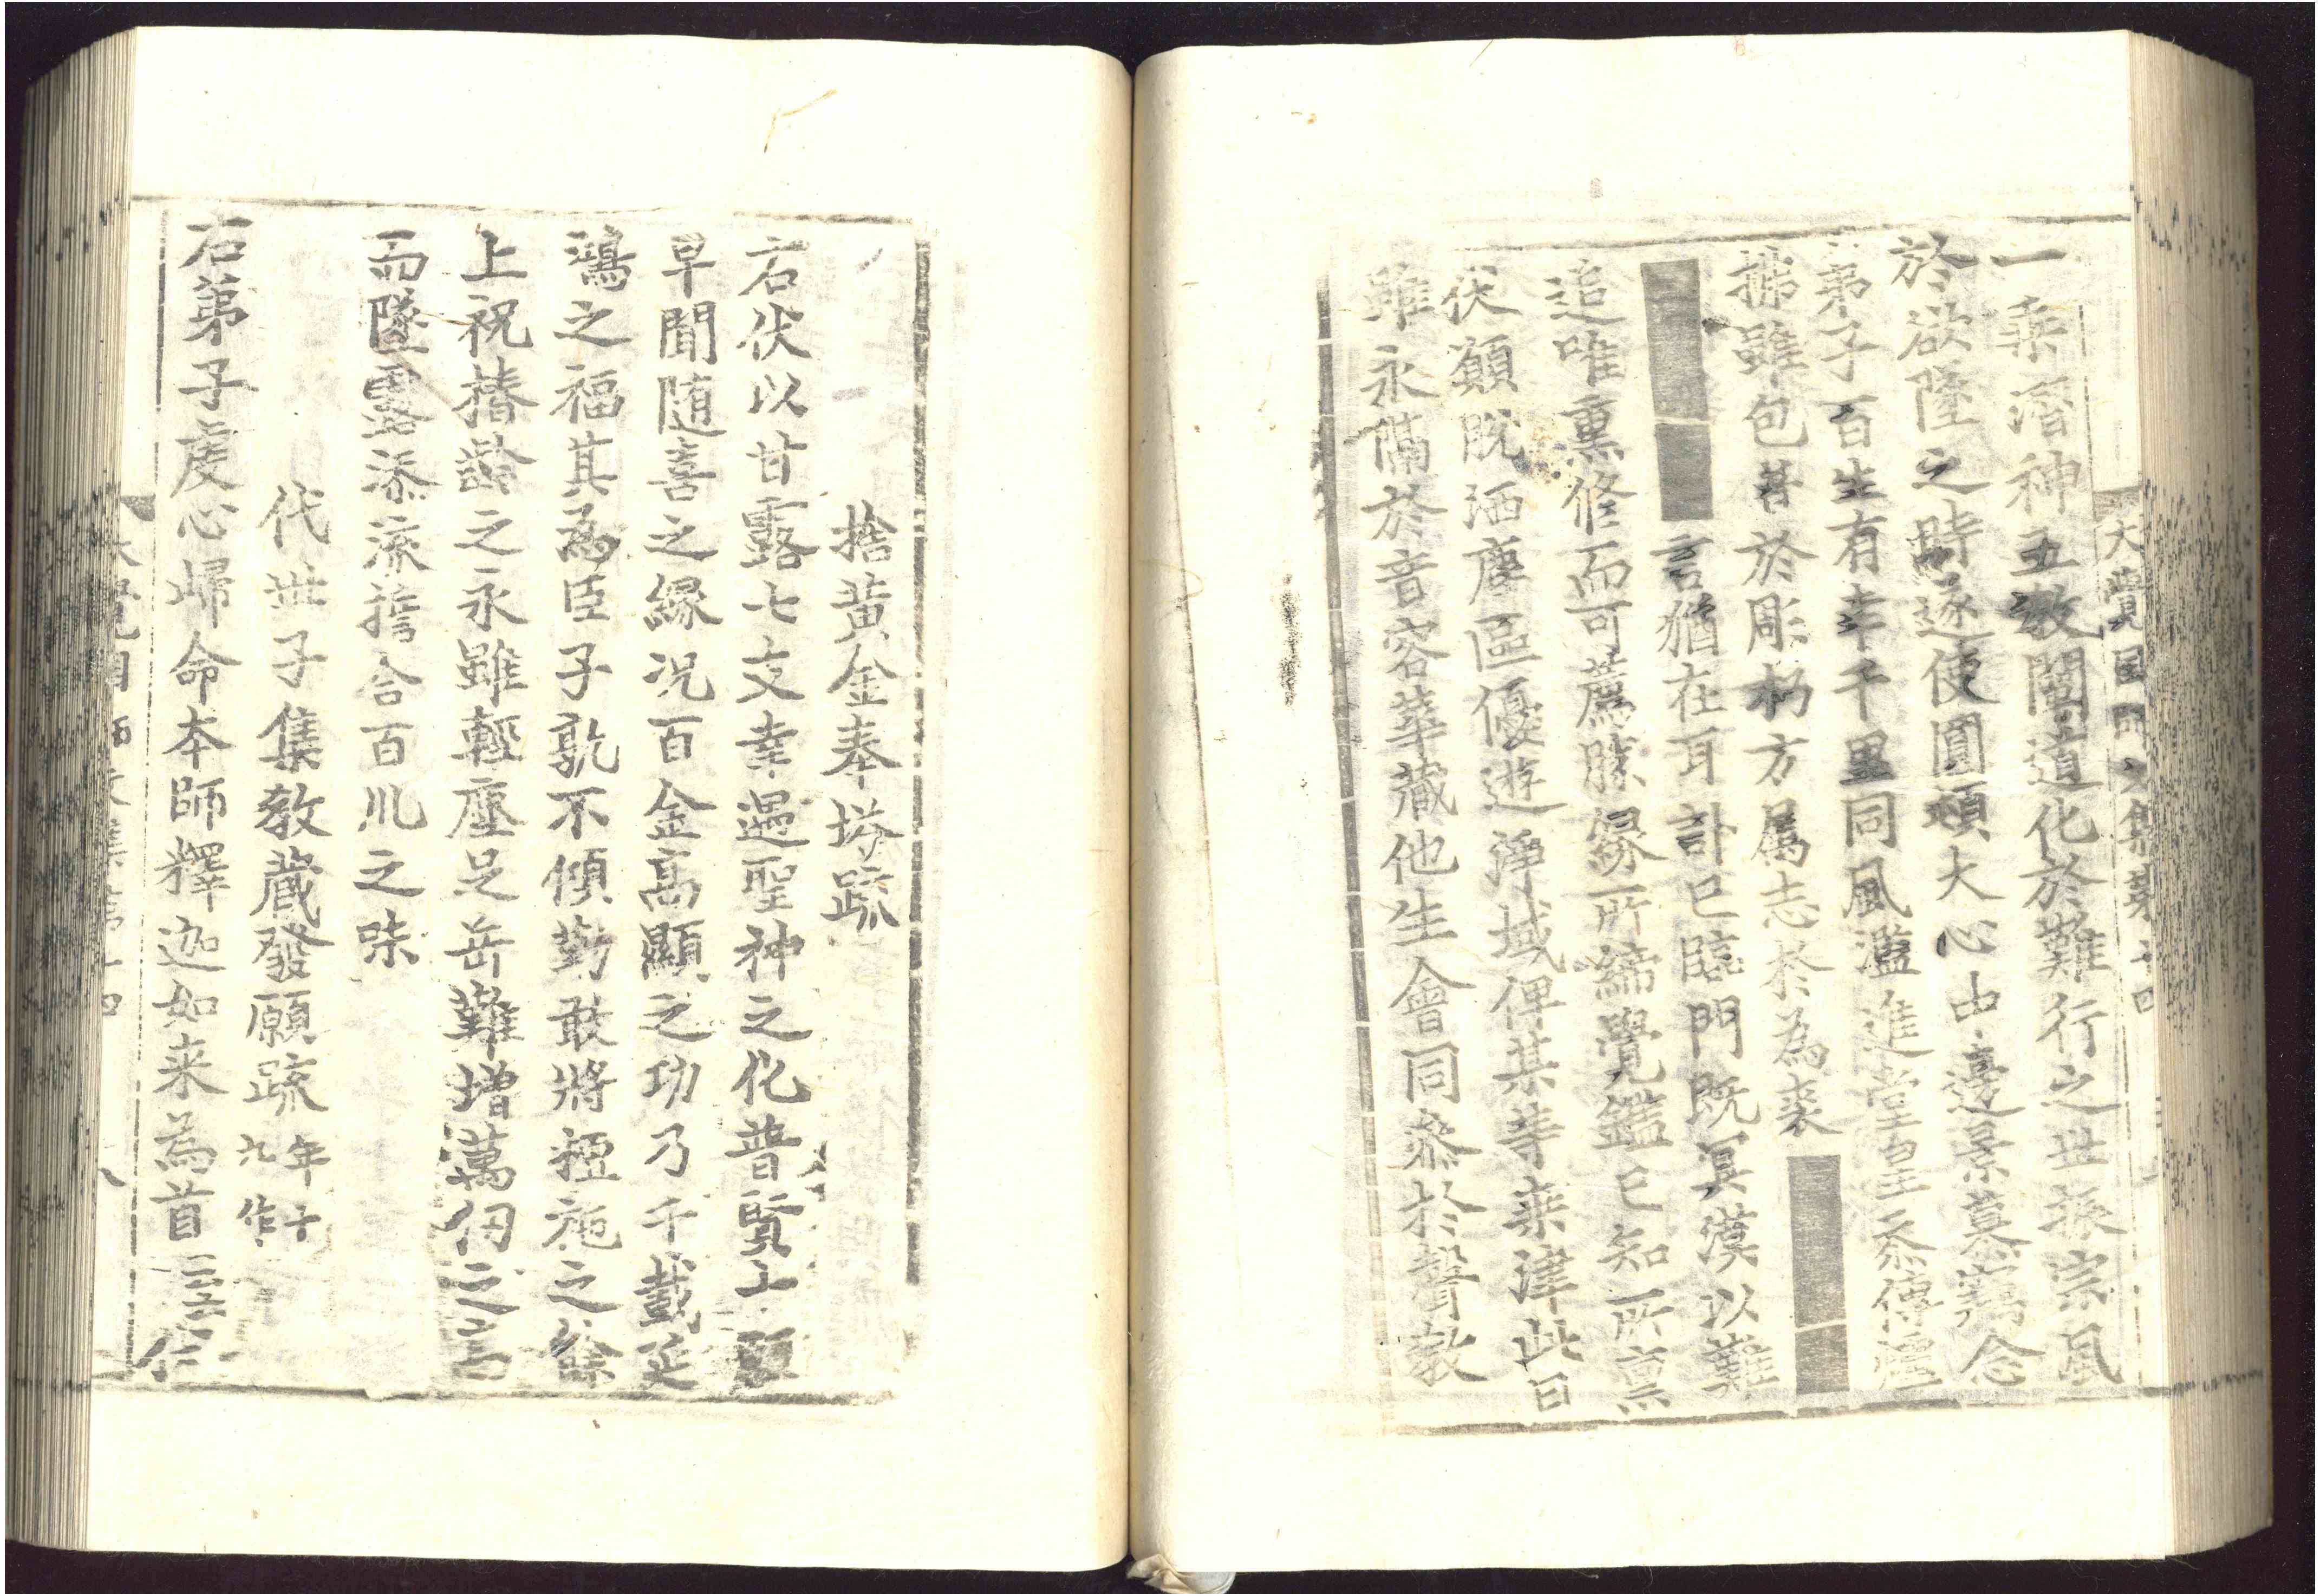 大覺國師文集第十四
一乘濬神五教闡道化於難行之世振宗風
於欲墜之時遂使圓頓大心由邊景慕竊念
弟子百生有幸千里同風濫進堂皇忝傳
據雖包昔於彫朽方属志於為裘
言猶在耳訃已臨門旣冥漠以難
追唯熏修而可薦勝緣所締覺鑑已知所禀
伏願旣洒塵區優遊淨域俾其等葉津此日
雖永隔於音容華藏他生會同叅於聲敎
捨黃金奉塔䟽
右伏以甘露七文幸遇聖神之化普賢上願
早聞随喜之緣况百金高顯之功乃千載延
鴻之福其為臣子孰不傾勤敢將檀施之餘
上祝播齡之永雖輕塵足岳難增萬仞之
而墜露添流擔合百川之味
代世子集教藏發願䟽 年十九作
右弟子虔心歸命本師釋迦如来為首
大覺國師文集第十四